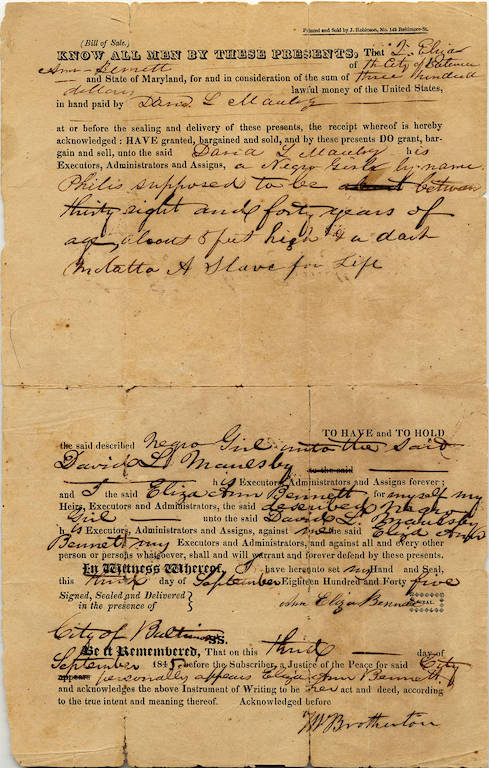 Printed and Sold by J. Robinson, No. 145 Baltimore-St.
(Bill of Sale.)
KNOW ALL MEN BY THESE PRESENTS, That I Eliza
Ann Bennett of the City of Baltimore
and State of Maryland, for and in consideration of the sum of three hundred
dollars lawful money of the United States,
in hand paid by David L Maulsby
at or before the sealing and delivery of these presents, the receipt whereof is hereby
acknowledged: HAVE granted, bargained and sold, and by these presents DO grant, bar-
gain and sell, unto the said David L Maulsby his
Executors, Administrators and Assigns, a Negro Girl by name
Philis supposed to be about between
thirty eight and forty years of
age, about 5 feet high & a dark
Mulatto A Slave for Life
TO HAVE and TO HOLD
the said described Negro Girl unto the said
David L. Maulsby to the said
his Executors, Administrators and Assigns forever;
and I the said Eliza Ann Bennett for myself my
Heirs, Executors and Administrators, the said described Negro
Girl unto the said David L. Maulsby
his Executors, Administrators and Assigns, against me the said Eliza Ann
Bennett my Executors and Administrators, and against all and every other
person or persons whatsoever, shall and will warrant and forever defend by these presents.
In Witness Whereof, I have hereunto set my Hand and Seal,
this third day of September Eighteen Hundred and Forty five
Signed, Sealed and Delivered
in the presence of
Ann Eliza Bennett SEAL.
City of Baltimore SS.
Be it Remembered, That on this third day of
September 1845 before the Subscriber, a Justice of the Peace for said City
appears personally appears Eliza Ann Bennett
and acknowledges the above Instrument of Writing to be her act and deed, according
to the true intent and meaning thereof. Acknowledged before
Brotherton